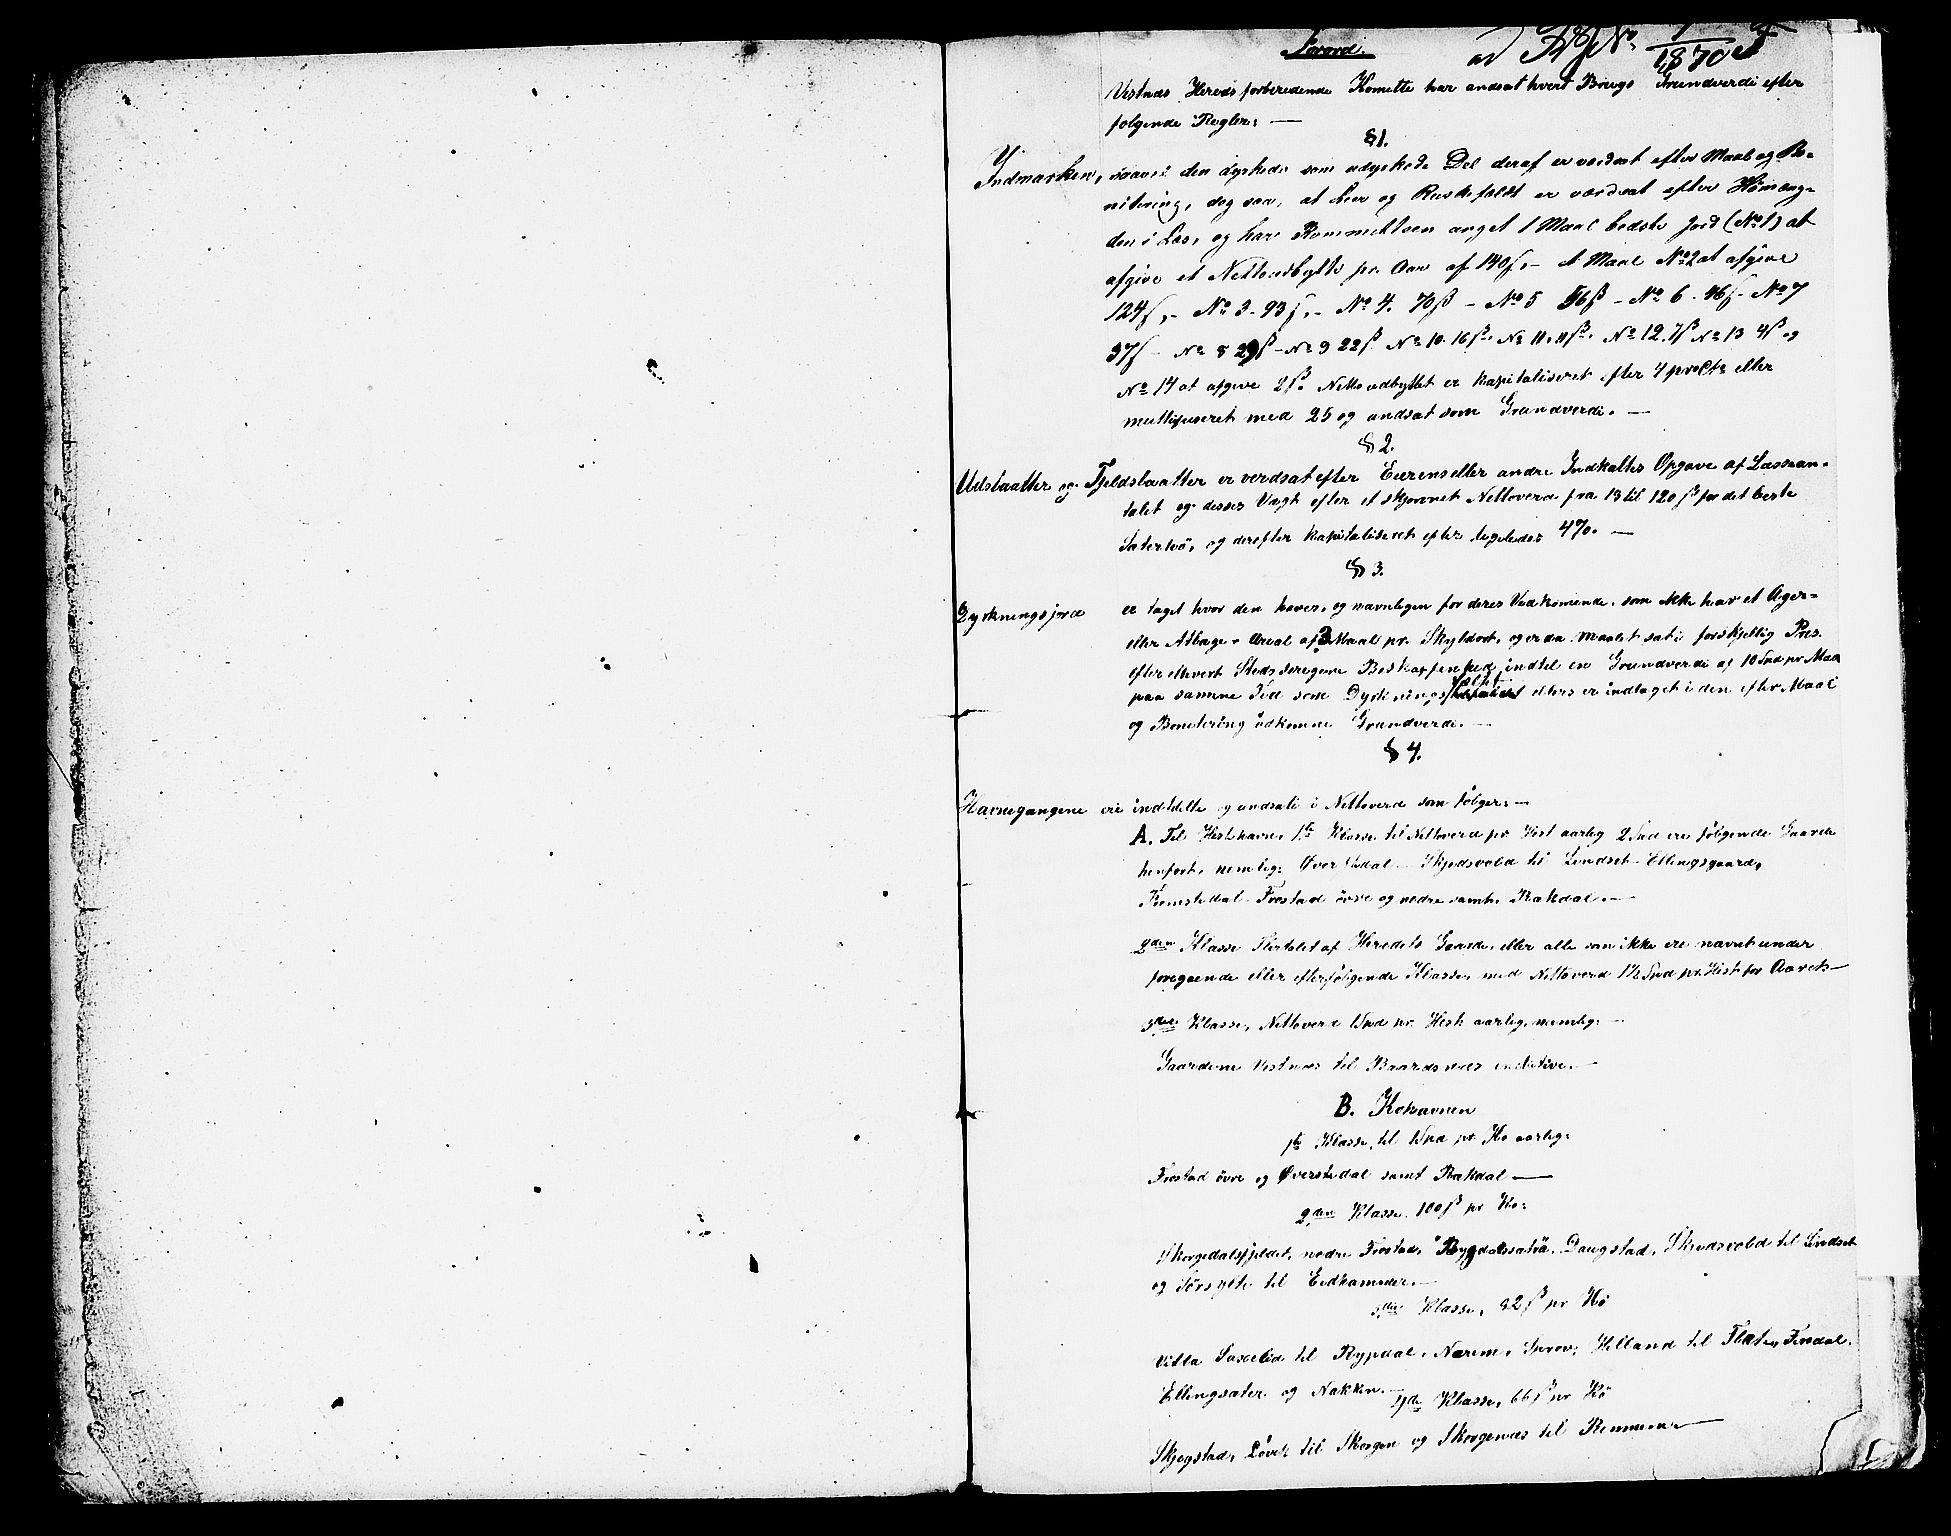 Forord.
ad No. 1/1870
Vestnæs Hereds forberedende Komitte har andsat hvert Brugs Grundverdi efter
følgende Regler: —
§ 1.
Indmarken, saavel den dyrkede som udyrkede Del deraf er verdsat efter Maal og Bo-
nitering, dog saa, at Leer og Ravdefeldt er værdsat efter Hömæng-
den i Læs, og har Kommitteen anget 1 Maal bedste Jord (No 1) at
afgive et Nettoudbytte pr. Aar af 140 ß, - et Maal No 2 at afgive
124 ß, - No 3 - 93 ß, - No 4. 70 ß - No 5 56 ß - No 6 - 46 ß - No 7
37 ß - No 8 29 ß - No 9 22 ß No 10. 16 ß. No 11. 11 ß. No 12. 7 ß No 13 4 ß og
No 14 at afgive 2 ß. Nettoudbyttet er kapitaliseret efter 4 proCt. eller
multipliseret med 25 og andsat som Grundverdi. —
§ 2.
Udslaatter og Fjeldslaatter er verdsat efter Eierens eller andre Indkaltes Opgave af Læssean-
talet og desses Vægt efter et skjønnet Nettoverd fra 13 til 120 ß for det beste
Sæterhö, og derefter kapitaliseret efter ligeledes 4 %. —
§ 3.
Dyrkningsjord er taget hvor den haves, og navnligen for deres Vedkomende, som ikke har et Ager-
eller Atlage- Areal af 3 Maal pr. Skyldort, og er da Maalet sat i forskjellig Pris
efter ethvert Steds seregene Beskaffenhed indtil en Grundverdi af 10 Spd pr Maal
paa samme Tid som Dyrkningsfeltet ellers er indtaget i den efter Maal
og Bonitering udkomne Grundverdi. —
§ 4.
Havnegangene ere inddelte og andsatte i Nettoverd som følger: —
A. Til Hesthavn, 1ste Klasse til Nettoverd pr. Hest aarlig 2 Spd ere følgende Gaarde
henført, nemlig: Øverstedal - Skjedsvold til Lindset - Ellingsgaard,
Tromstedal. Frostad övre og nedre samt Rakdal. —
2den Klasse Flertalet af Heredets Gaarde, eller alle som ikke ere navnt under
foregaende eller efterfølgende Klasse, med Nettoverd 1½ Spd pr. Hest for Aaret —
3die Klasse, Nettoverd 1 Spd pr. Hest aarlig, nemlig: —
Gaardene Vestnæs til Baardsnæs inclutive. —
B. Kohavnen
1ste Klasse, til 1 Spd pr Ko aarlig:
Frostad övre og Øverstedal samt Rakdal —
2den Klasse. 100 ß pr Ko:
Skorgedalsfjeldet, nedre Frostad, Rypdalssæträ. Daugstad, Skjedsvold til Lindset
og Törsylte til Eidhammer. —
3die Klasse, 82 ß pr Kö
Villa Saxelid til Rypdal, Nærem, Sprov, Helland til Flaten, Fendal.
Ellingsæter og Nakken. —
4de Klasse, 66 ß pr Kö
Skjegstad, Løvik til Skorgen og Skorgenæs til Remmem —
1